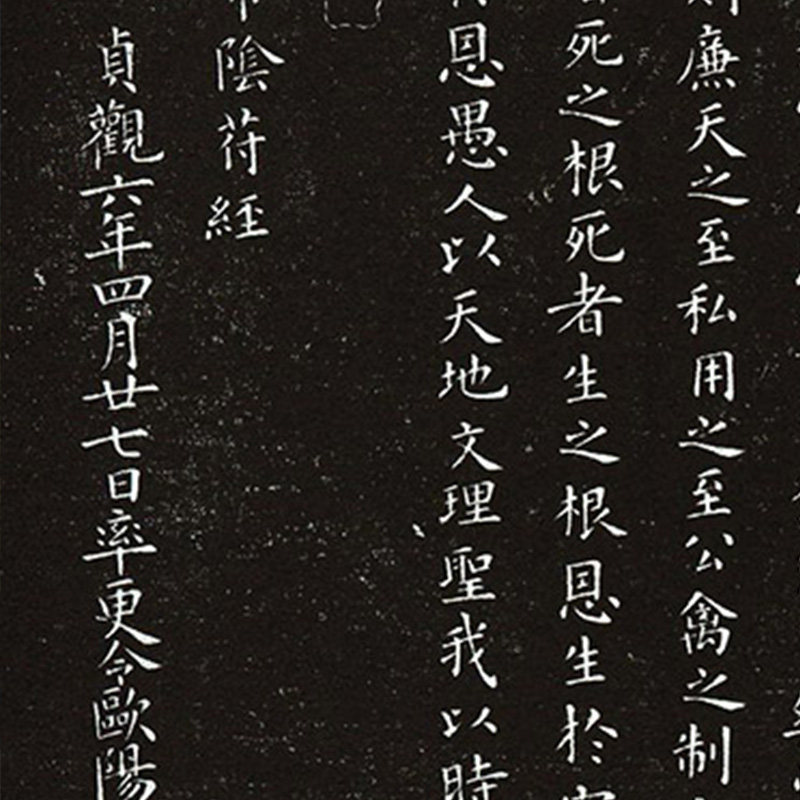 廉天之至私用之至公禽之制
死之根死者生之根恩生於
恩愚人以天地文理聖我以時
陰符經
貞觀六年四月廿七日率更令歐陽